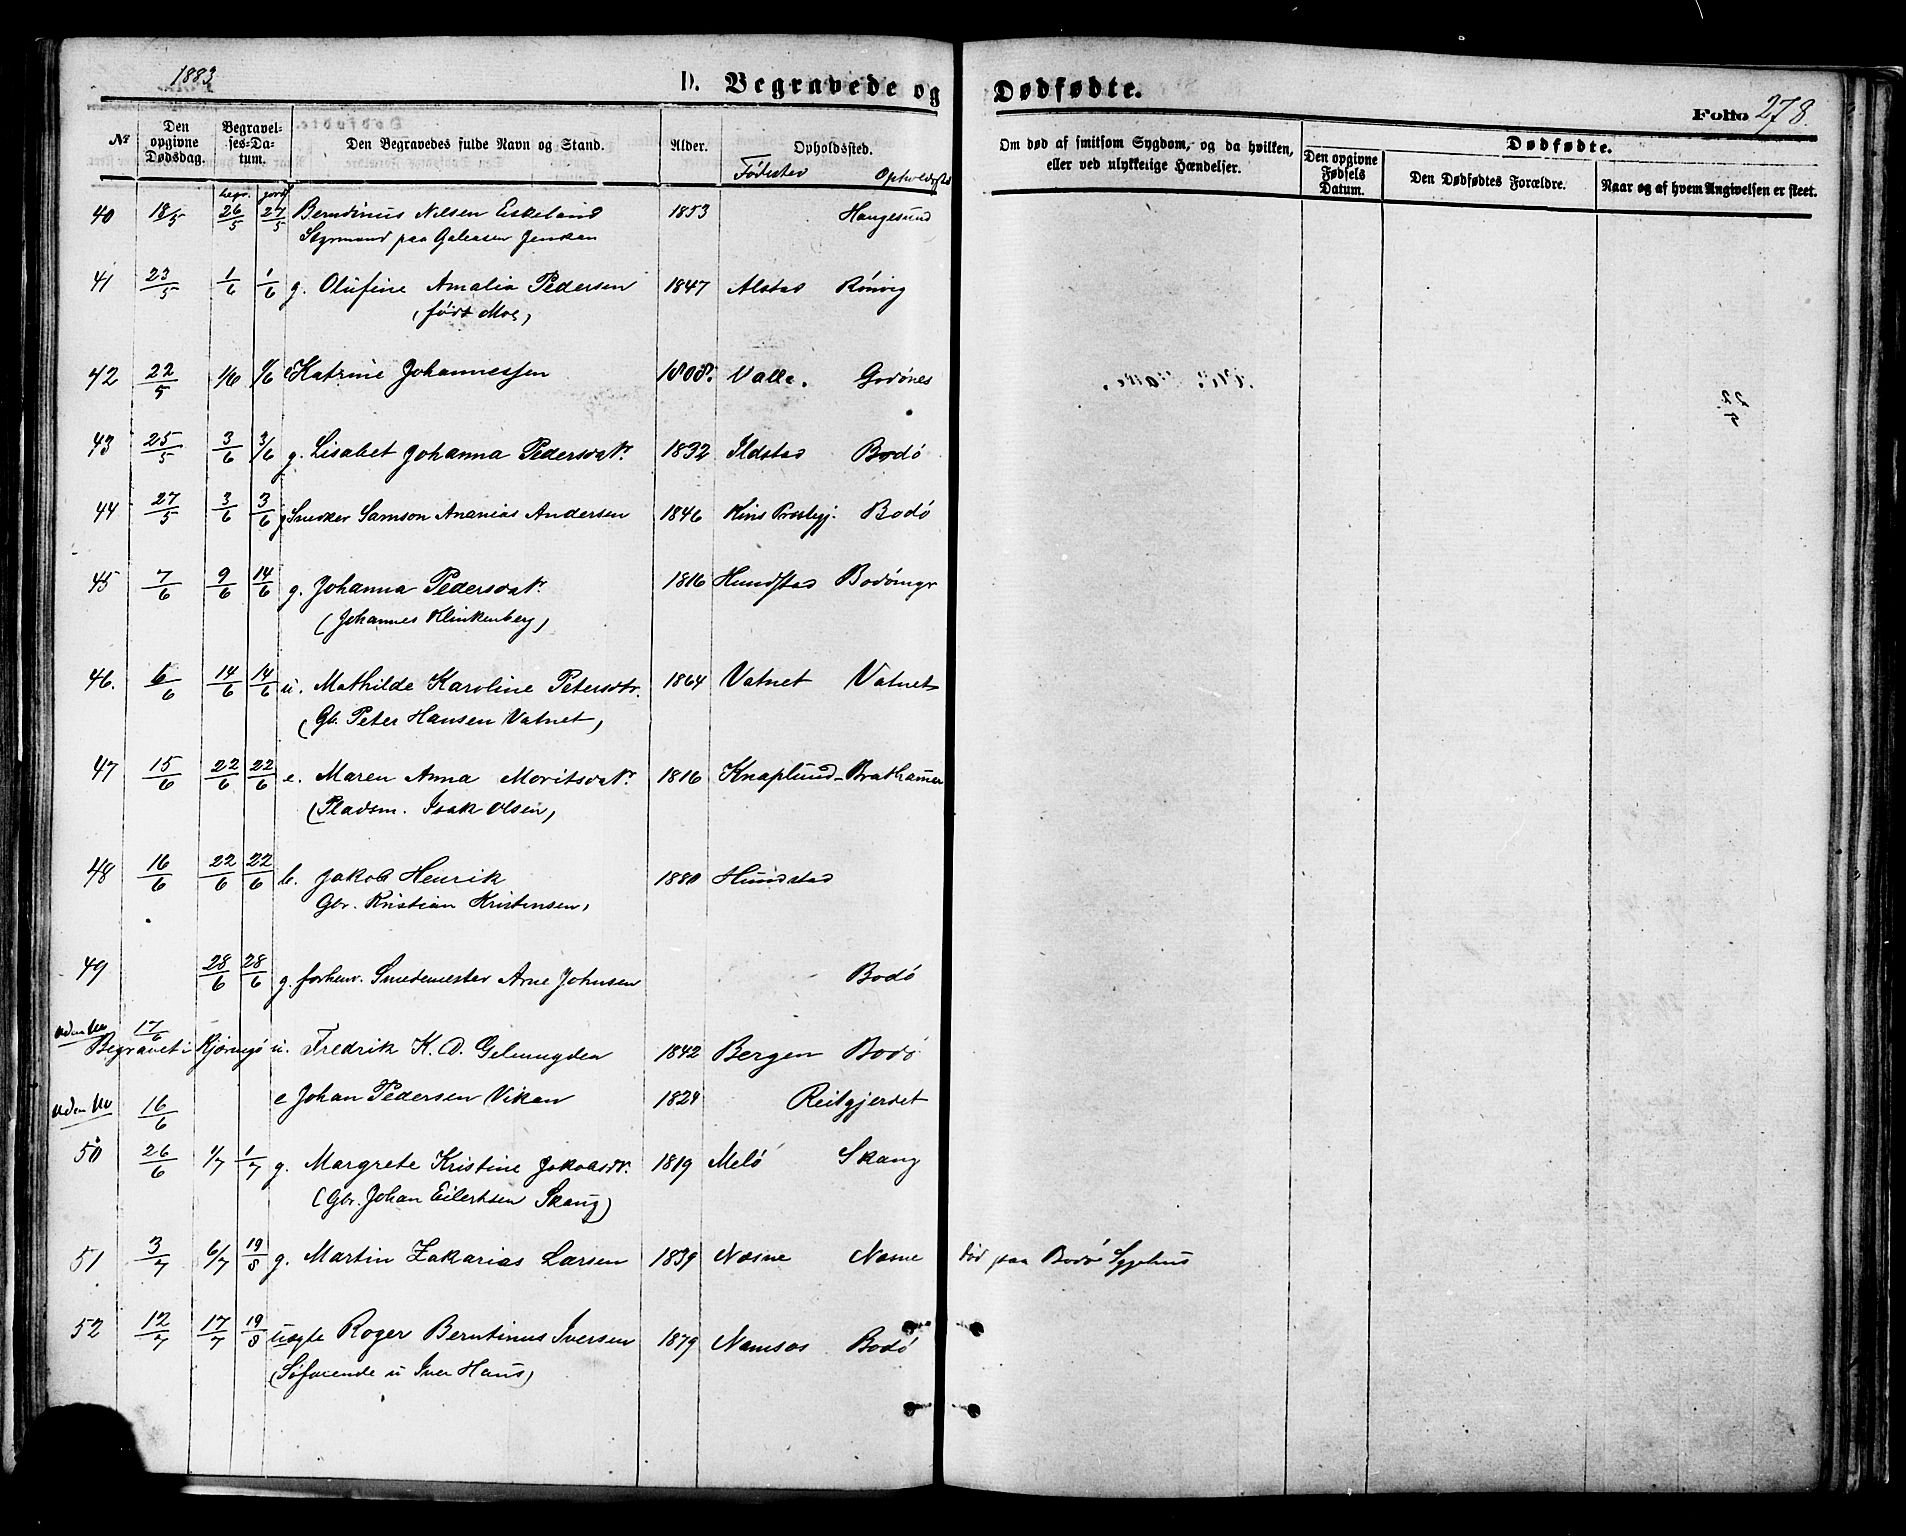 1883
D. Begravede og Dødfødte.
Folio 278.
No
Den opgivne Dødsdag.
Begravelses-Datum.
Den Begravedes fulde Navn og Stand.
Alder.
Opholdssted.
Fødested Opholdssted
begr. jordf
Om død af smitsom Sygdom, og da hvilken, eller ved ulykkelige Hændelser.
Dødfødte.
Den opgivne Fødsels Datum.
Den Dødfødtes Forældre.
Naar og af hvem Angivelsen er skeet.
40 18/5 26/5 27/5 Berndinus Nilsen Eskeland 1853 Haugesund
Styrmand paa Galeasen
41 23/5 1/6 1/6 g. Olufine Amalia Pedersen 1847 Alstad Rönvig
(født Moe)
42 22/5 1/6 1/6 e Katrine Johannessen 1808. Valle. Godönes
43 25/5 3/6 3/6 g. Lisabet Johanna Pedersdatr. 1832 Ildstad Bodö
44 27/5 3/6 3/6 g Snedker Samson Ananias Andersen 1846 Kins Præstegj. Bodö
45 7/6 9/6 14/6 g. Johanna Pedersdatr. 1816 Hundstad Bodömyr
(Johannes Klinkenberg)
46. 6/6 14/6 14/6 u. Mathilde Karoline Petersdtr. 1864 Vatnet Vatnet
(Gb. Peter Hansen Vatnet)
47 15/6 22/6 22/6 e. Maren Anna Moritsdatr. 1816 Knaplund Brathamer
(Pladsm. Isak Olsen)
48 16/6 22/6 22/6 b. Jakob Henrik 1880 Hundstad
Gbr. Kristian Kristensen
49 28/6 28/6 g. forhenv. Smedemester Arne Johnsen Bodö
uden No 17/6
Begravet i Kjøringö u. Fredrik K. D. Gelmuyden 1842 Bergen Bodö
uden No 16/6 e Johan Pedersen Vikan 1824 Reitgjerdet
50 26/6 1/7 1/7 g. Margrete Kristine Jakobsdr. 1819 Melö Skaug
(Gbr. Johan Eilertsen Skaug)
51 3/7 6/7 19/8 g. Martin Zakarias Larsen 1839 Næsne Næsne død paa Bodö Sygehus
52 12/7 17/7 19/8 uægte Roger Berntinus Iversen 1879 Namsos Bodö
(Söfarende u Iver Hans)